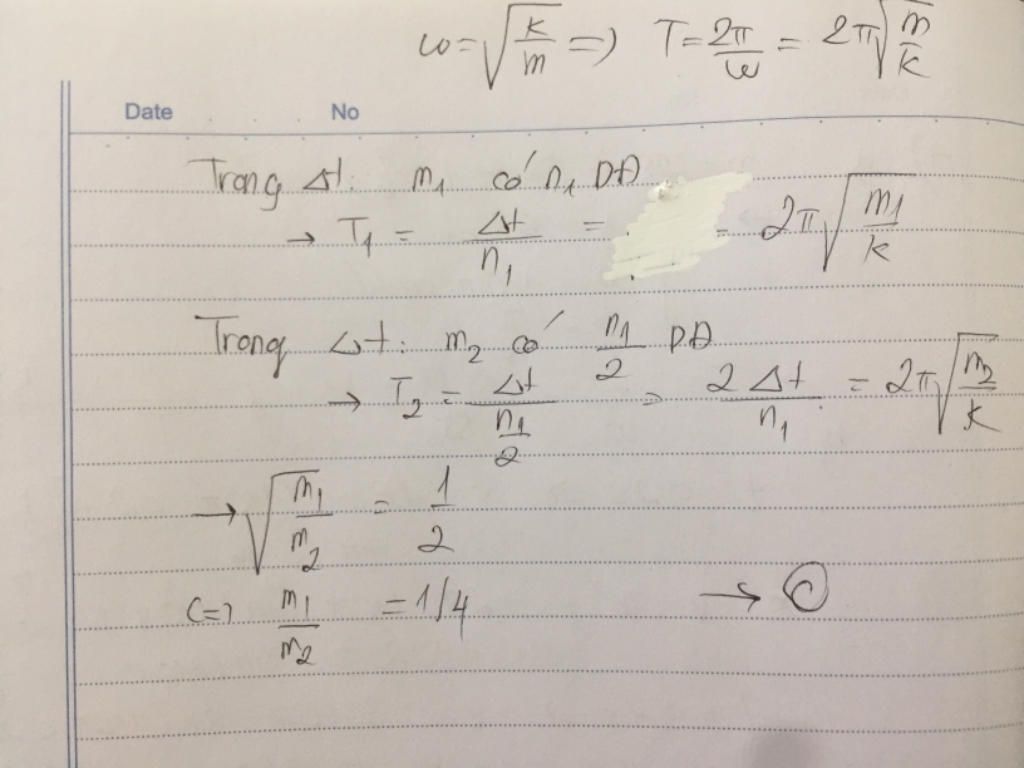 ω = √(k/m) => T = 2π/ω = 2π√(m/k)
Date No
Trong Δt: m₁ có n₁ DĐ
→ T₁ = Δt/n₁ = = 2π√(m₁/k)
Trong Δt: m₂ có n₁/2 DĐ
→ T₂ = Δt/(n₁/2) = 2Δt/n₁ = 2π√(m₂/k)
→ √(m₁/m₂) = 1/2
<=> m₁/m₂ = 1/4 → C